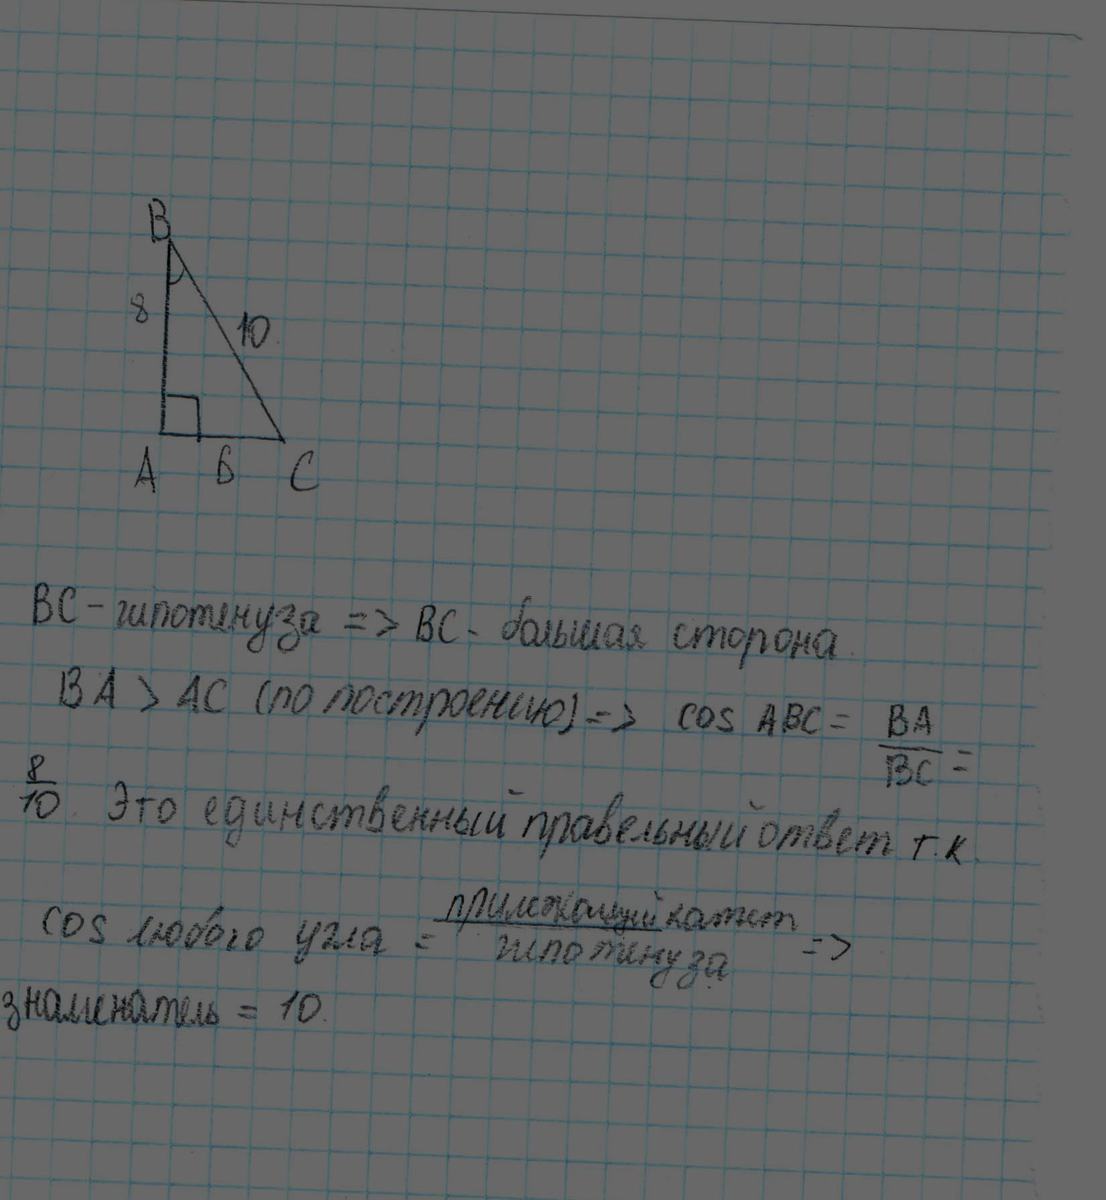 B
8
10
A 6 C
BC - гипотенуза => BC - большая сторона.
BA > AC (по построению) => cos ABC = BA/BC =
8/10. Это единственный правельный ответ т.к.
cos любого угла = прилежающий катет/гипотенуза =>
знаменатель = 10.